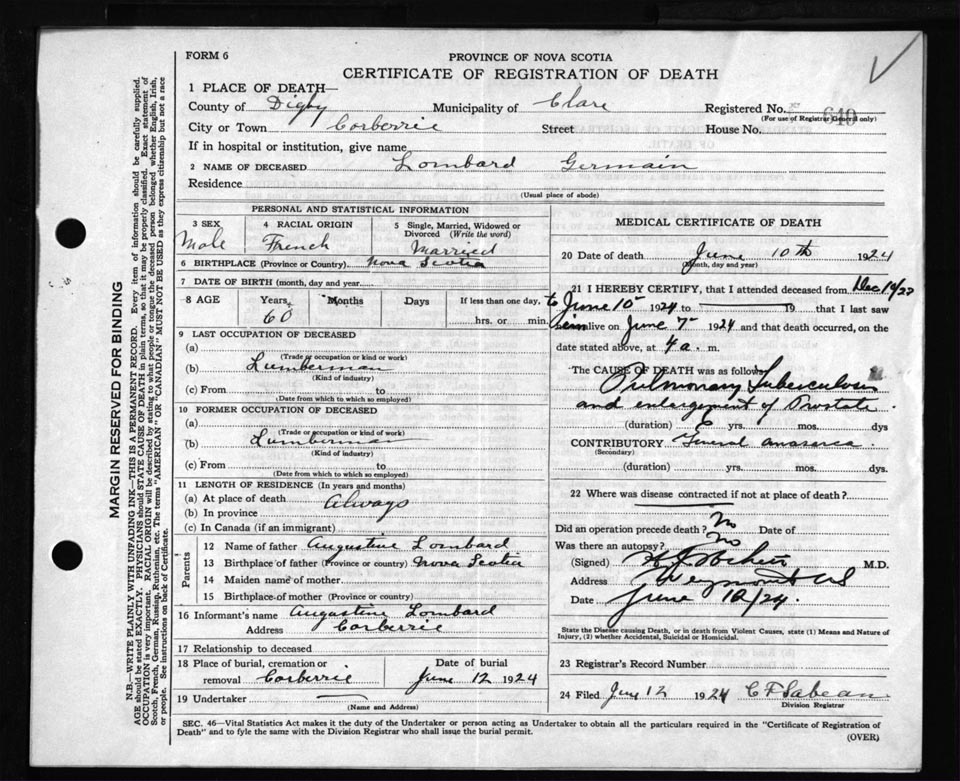 FORM 6
PROVINCE OF NOVA SCOTIA
CERTIFICATE OF REGISTRATION OF DEATH
1 PLACE OF DEATH—
County of Digby Municipality of Clare Registered No. 640
(For use of Registrar General only)
City or Town Corberrie Street House No.
If in hospital or institution, give name
2 NAME OF DECEASED Lombard Germain
Residence
(Usual place of abode)
PERSONAL AND STATISTICAL INFORMATION
3 SEX 4 RACIAL ORIGIN 5 Single, Married, Widowed or Divorced (Write the word)
Male French Married
6 BIRTHPLACE (Province or Country) Nova Scotia
7 DATE OF BIRTH (month, day and year)
8 AGE Years Months Days If less than one day,
60 hrs. or min.
9 LAST OCCUPATION OF DECEASED
(a)
(Trade or occupation or kind or work)
(b) Lumberman
(Kind of industry)
(c) From to
(Date from which to which so employed)
10 FORMER OCCUPATION OF DECEASED
(a)
(Trade or occupation or kind of work)
(b) Lumberman
(Kind of industry)
(c) From to
(Date from which to which so employed)
11 LENGTH OF RESIDENCE (In years and months)
(a) At place of death Always
(b) In province
(c) In Canada (if an immigrant)
Parents
12 Name of father Augustine Lombard
13 Birthplace of father (Province or country) Nova Scotia
14 Maiden name of mother
15 Birthplace of mother (Province or country)
16 Informant's name Augustine Lombard
Address Corberrie
17 Relationship to deceased
18 Place of burial, cremation or removal Corberrie
Date of burial June 12 1924
19 Undertaker
(Name and Address)
MEDICAL CERTIFICATE OF DEATH
20 Date of death June 10th 1924
(Month, day and year)
21 I HEREBY CERTIFY, that I attended deceased from Dec
to June 10 1924 to 19 that I last saw
alive on June 7 1924 and that death occurred, on the
date stated above, at 4 a. m.
The CAUSE OF DEATH was as follows
Pulmonary Tuberculosis
and enlargement of Prostate
(duration) yrs. mos. dys
CONTRIBUTORY General anasarca
(Secondary)
(duration) yrs. mos. dys.
22 Where was disease contracted if not at place of death?
Did an operation precede death? No Date of
Was there an autopsy? No
(Signed) M.D.
Address Weymouth NS
Date June 12/24.
State the Disease causing Death, or in death from Violent Causes, state (1) Means and Nature of
Injury, (2) whether Accidental, Suicidal or Homicidal.
23 Registrar's Record Number
24 Filed June 12 1924 C F Sabean
Division Registrar
SEC. 46—Vital Statistics Act makes it the duty of the Undertaker or person acting as Undertaker to obtain all the particulars required in the "Certificate of Registration of
Death" and to fyle the same with the Division Registrar who shall issue the burial permit.
(OVER)
MARGIN RESERVED FOR BINDING
N.B.—WRITE PLAINLY WITH UNFADING INK—THIS IS A PERMANENT RECORD. Every item of information should be carefully supplied.
AGE should be stated EXACTLY. PHYSICIANS should STATE CAUSE OF DEATH in plain terms, so that it may be properly classified. Exact statement of
OCCUPATION is very important. RACIAL ORIGIN will be described by stating to what people or tongue the deceased person belonged whether English, Irish,
Scotch, French, German, Russian, Ruthenian, etc. The terms "AMERICAN" OR "CANADIAN" MUST NOT BE USED as they express citizenship but not a race
or people. See instructions on back of Certificate.